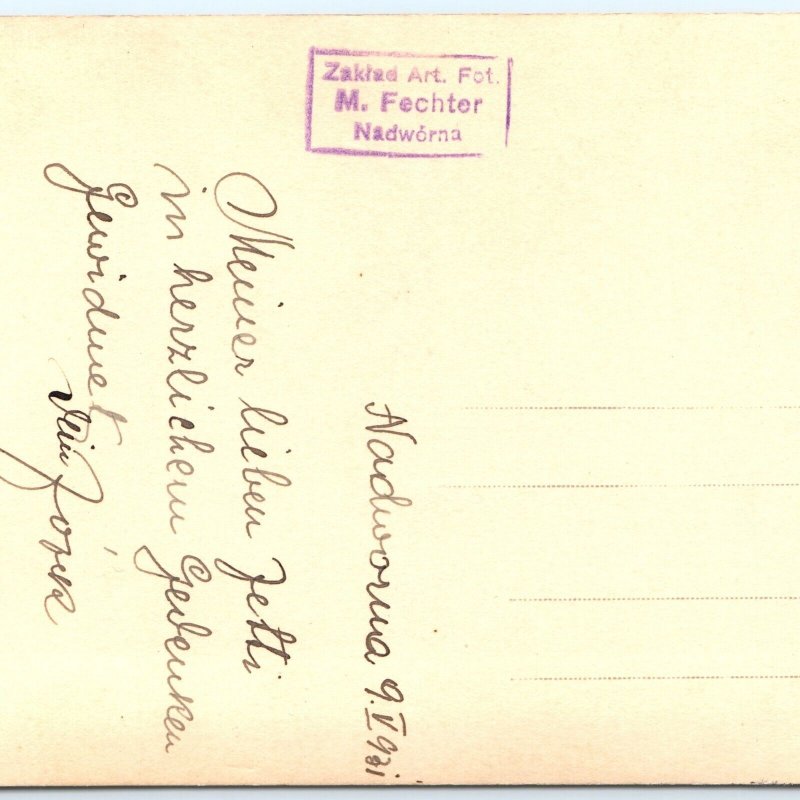 Zakład Art. Fot.
M. Fechter
Nadwórna
Nadworna 9.V 931
Meiner lieben Jetti
in herzlichem Gedenken
Gewidmet
Dein Josek